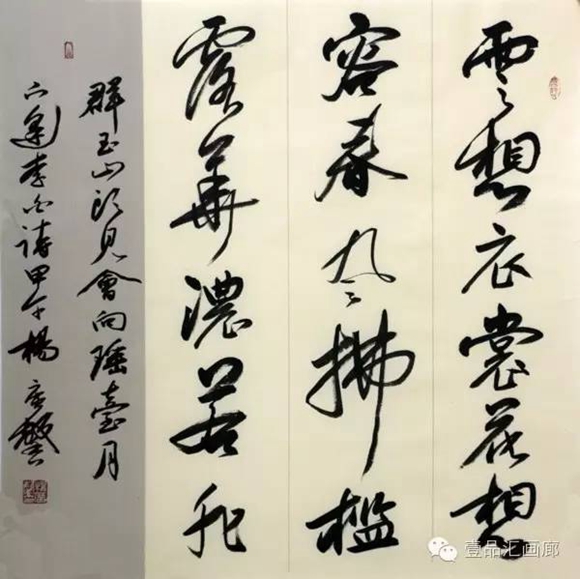 雲想衣裳花想
容春風拂檻
露華濃若非
群玉山頭見會向瑤臺月
下逢李白詩甲午楊广馨
壹品汇画廊